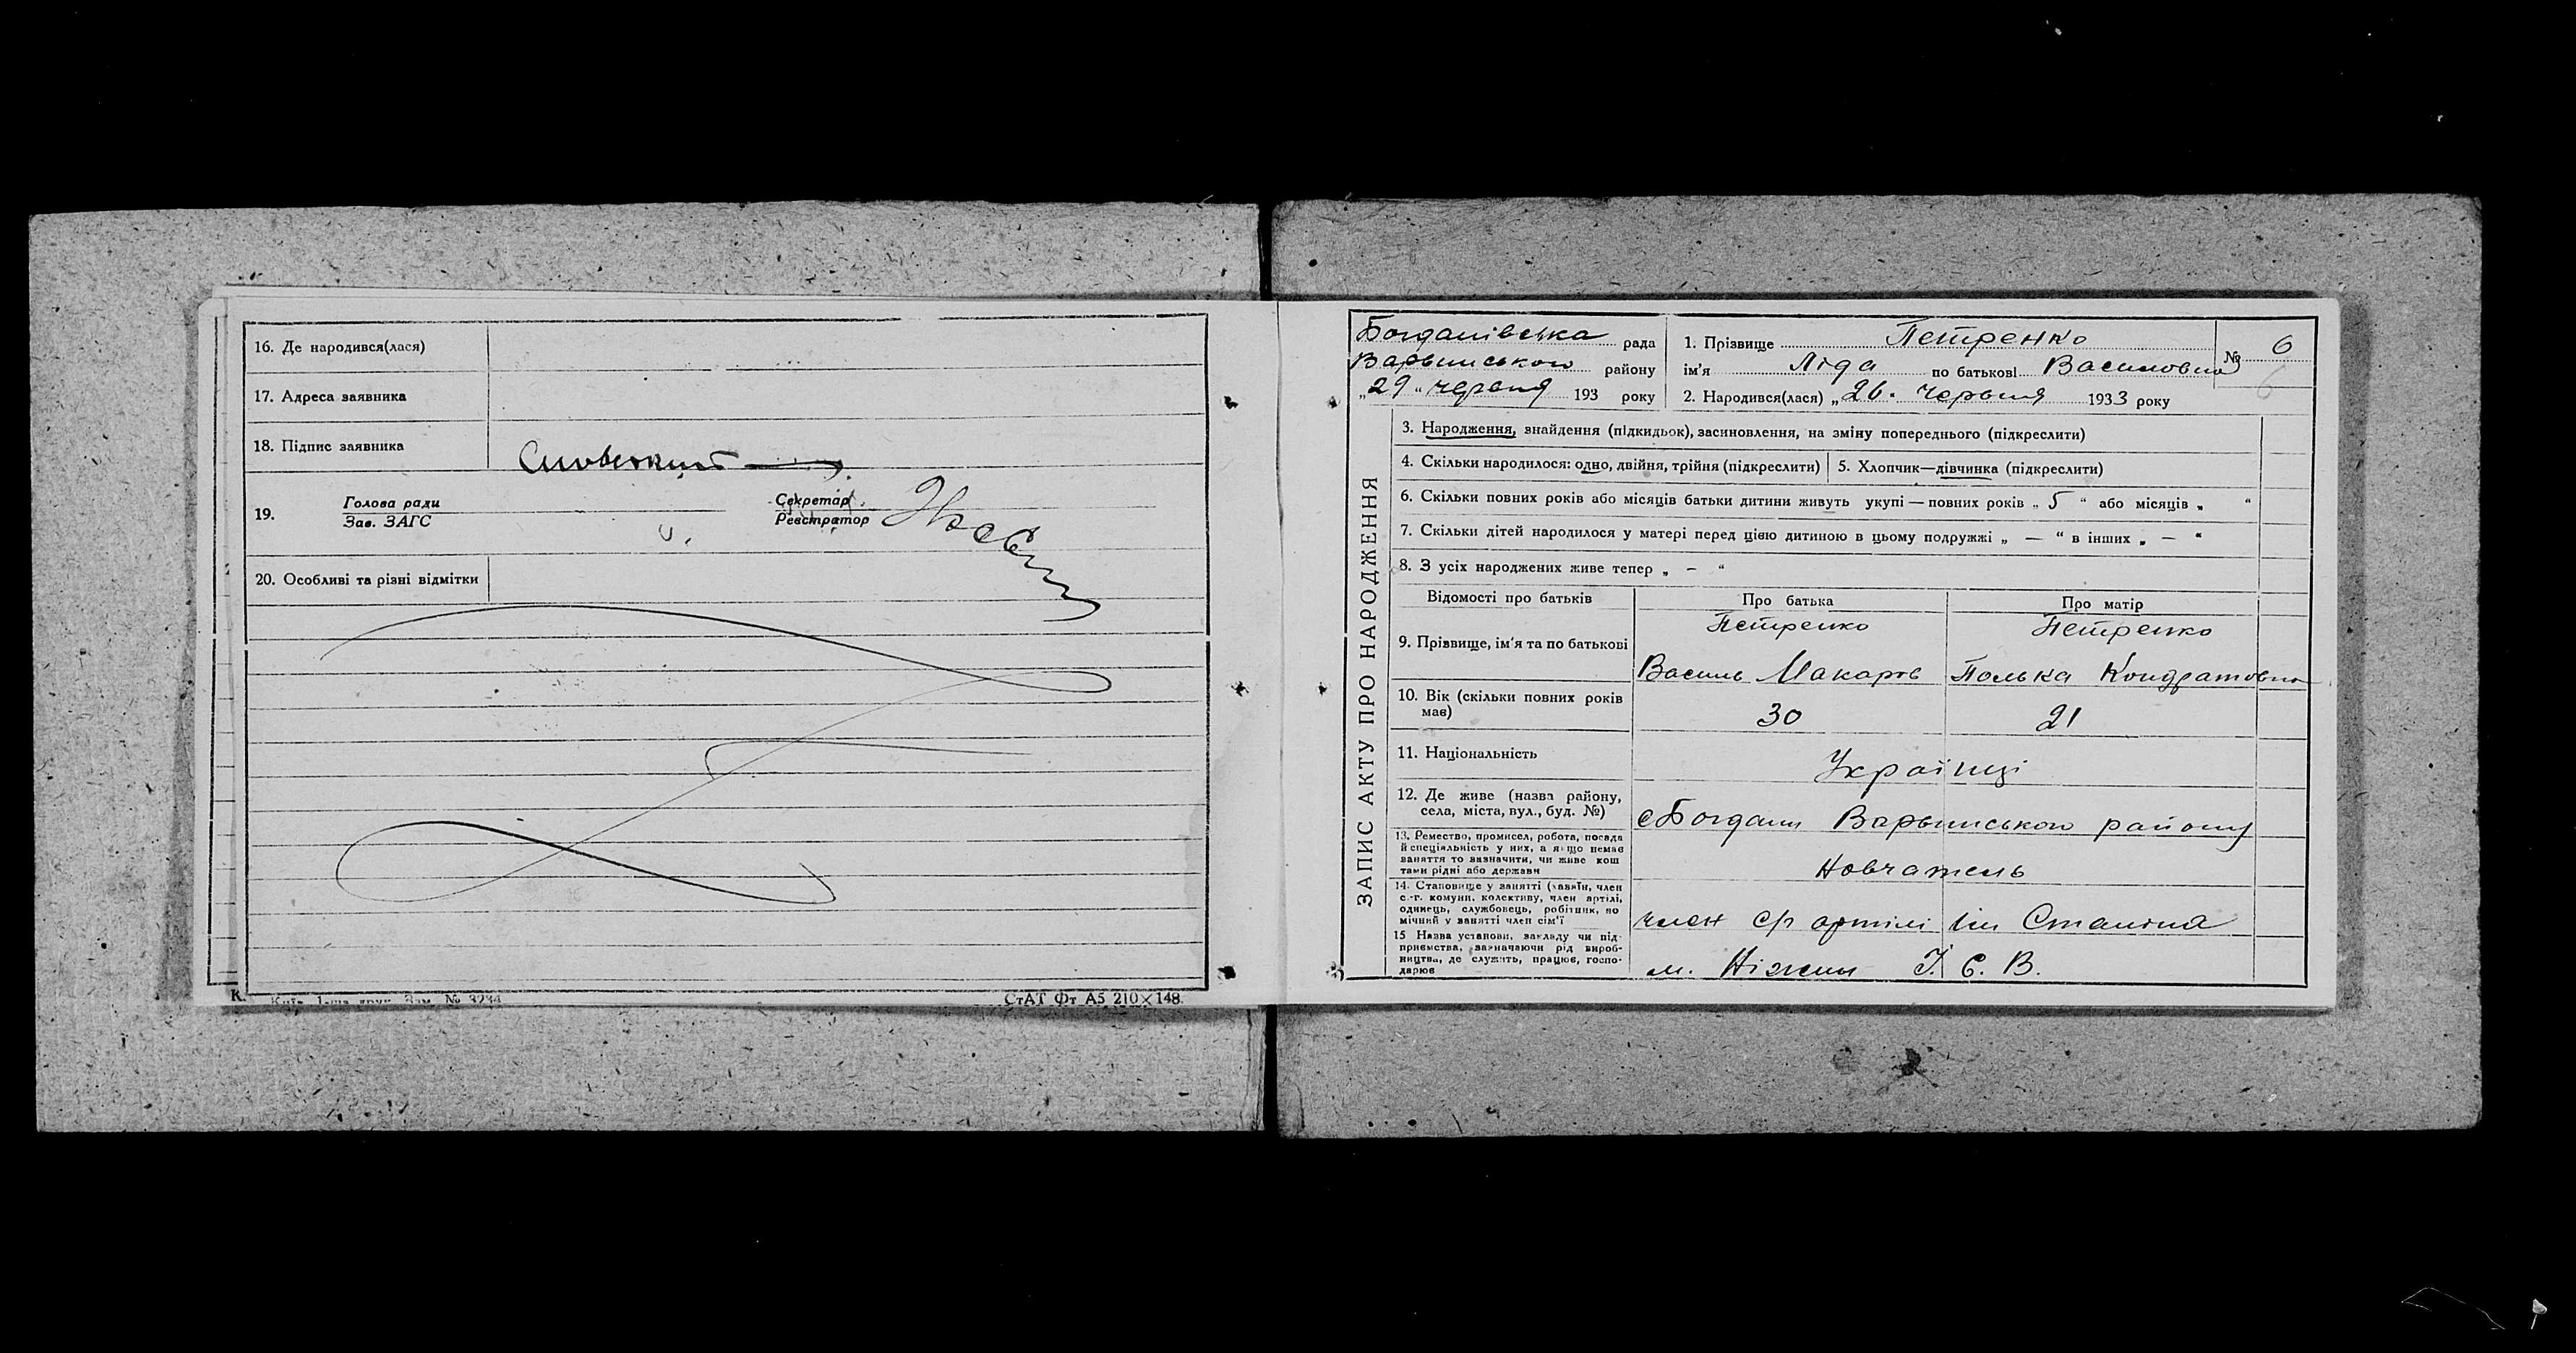 16. Де народився(лася)
17. Адреса заявника
18. Підпис заявника
19. Голова ради
Зав. ЗАГС
Секретар
Реєстратор
20. Особливі та різні відмітки
СтАТ Фт А5 210×148.
ЗАПИС АКТУ ПРО НАРОДЖЕННЯ
Богданівська рада
Варвинського району
„29" червня 193 року
1. Прізвище Петренко
ім'я Ліда по батькові Василовна
№ 6
6
2. Народився(лася) „26. Червня 1933 року
3. Народження, знайдення (підкидьок), засиновлення, на зміну попереднього (підкреслити)
4. Скільки народилося: одно, двійня, трійня (підкреслити)
5. Хлопчик—дівчинка (підкреслити)
6. Скільки повних років або місяців батьки дитини живуть укупі — повних років „ 5 " або місяців „ "
7. Скільки дітей народилося у матері перед цією дитиною в цьому подружжі „ — " в інших „ — "
8. З усіх народжених живе тепер „ – "
Відомості про батьків
Про батька
Про матір
9. Прізвище, ім'я та по батькові
Петренко
Василь Макаров
Петренко
Полька Кондратовна
10. Вік (скільки повних років має)
30
21
11. Національність
Українці
12. Де живе (назва району,
села, міста, вул., буд. №)
с Богдани Варвинського району
13. Ремество, промисел, робота, посада
й спеціяльність у них, а якщо немає
заняття то зазначити, чи живе кош
тами рідні або держави
Новчатель
14. Становище у занятті (хазяїн, член
с.-г. комуни, колективу, член артілі,
одинець, службовець, робітник, по
мічний у занятті член сім'ї
член с/г артілі ім Сталіна
15 Назва установи, закладу чи під-
приємства, зазначаючи рід вироб-
ництва, де служить, працює, госпо-
дарює
м. Ніжин І. С. В.